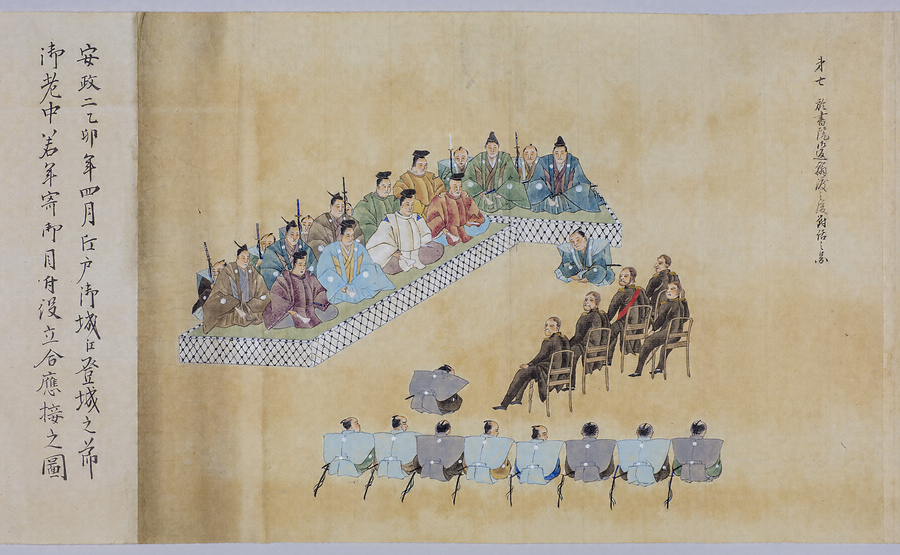 才七 於書院御返翰渡之後対話之図
安政二乙卯年四月江戸御城江登城之節
御老中若年寄御目付役立合應接之圖